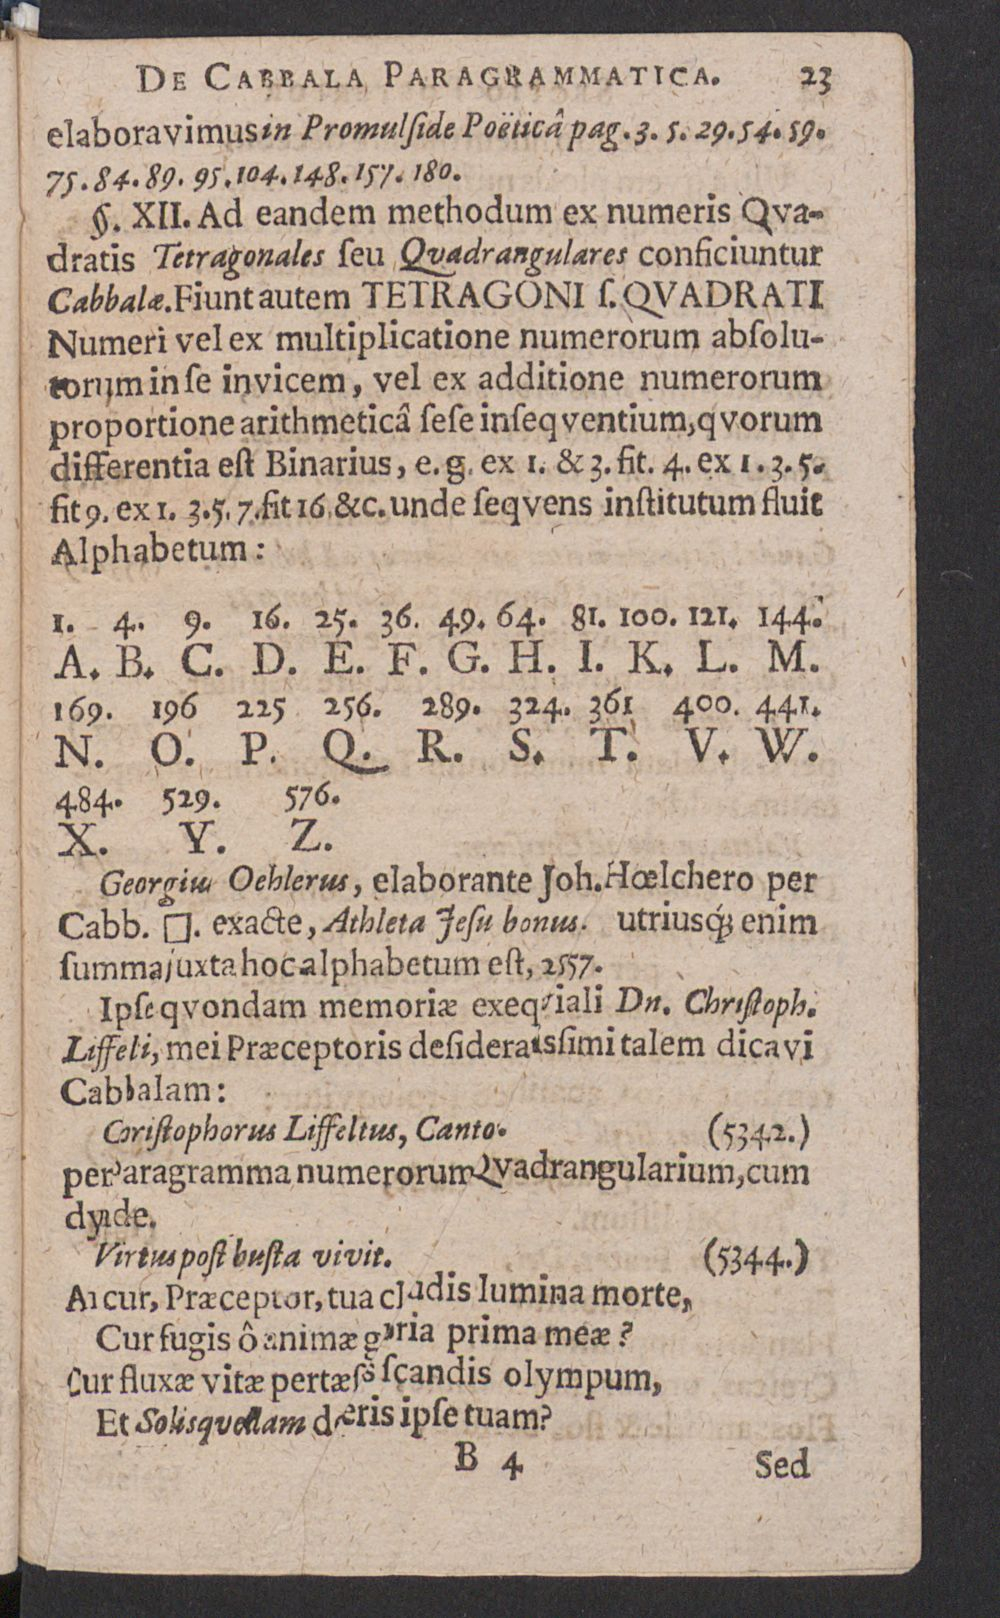 DE CABBALA PARAGRAMMATICA. 23
elaboravimus in Promulſide Poëticâ pag. 3. 5. 29. 54. 59.
75. 84. 89. 95. 104. 148. 157. 180.
§. XII. Ad eandem methodum ex numeris Qva-
dratis Tetragonales ſeu Qvadrangulares conficiuntur
Cabbalæ. Fiunt autem TETRAGONI ſ. QVADRATI
Numeri vel ex multiplicatione numerorum abſolu-
torum in ſe invicem, vel ex additione numerorum
proportione arithmeticâ ſeſe inſeqventium, qvorum
differentia eſt Binarius, e. g. ex 1. & 3. fit. 4. ex 1. 3. 5.
fit 9. ex 1. 3. 5. 7. fit 16 &c. unde ſeqvens inſtitutum fluit
Alphabetum:
1. 4. 9. 16. 25. 36. 49. 64. 81. 100. 121. 144.
A. B. C. D. E. F. G. H. I. K. L. M.
169. 196 225 256. 289. 324. 361 400. 441.
N. O. P. Q. R. S. T. V. W.
484. 529. 576.
X. Y. Z.
Georgius Oehlerus, elaborante Joh. Hœlchero per
Cabb. □. exacte, Athleta Jeſu bonus. utriusq́ꝫ enim
ſumma juxta hoc alphabetum eſt, 2557.
Ipſe qvondam memoriæ exeqviali Dn. Chriſtoph.
Liffeli, mei Præceptoris deſideratsſimi talem dicavi
Cabbalam:
Chriſtophorus Liffeltus, Canto. (5342.)
per Paragramma numerorum Qvadrangularium, cum
dyade.
Virtus poſt buſta vivit. (5344.)
Ah cur, Præceptor, tua claudis lumina morte,
Cur fugis ô animæ gloria prima meæ?
Cur fluxæ vitæ pertæſs9 ſcandis olympum,
Et Solisque deeris ipſe tuam?
B 4 Sed